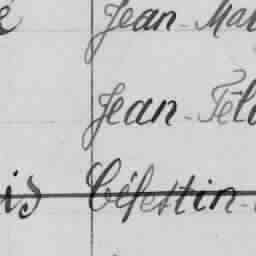 é Jean-Ma
Jean-Féli
is Célestin-